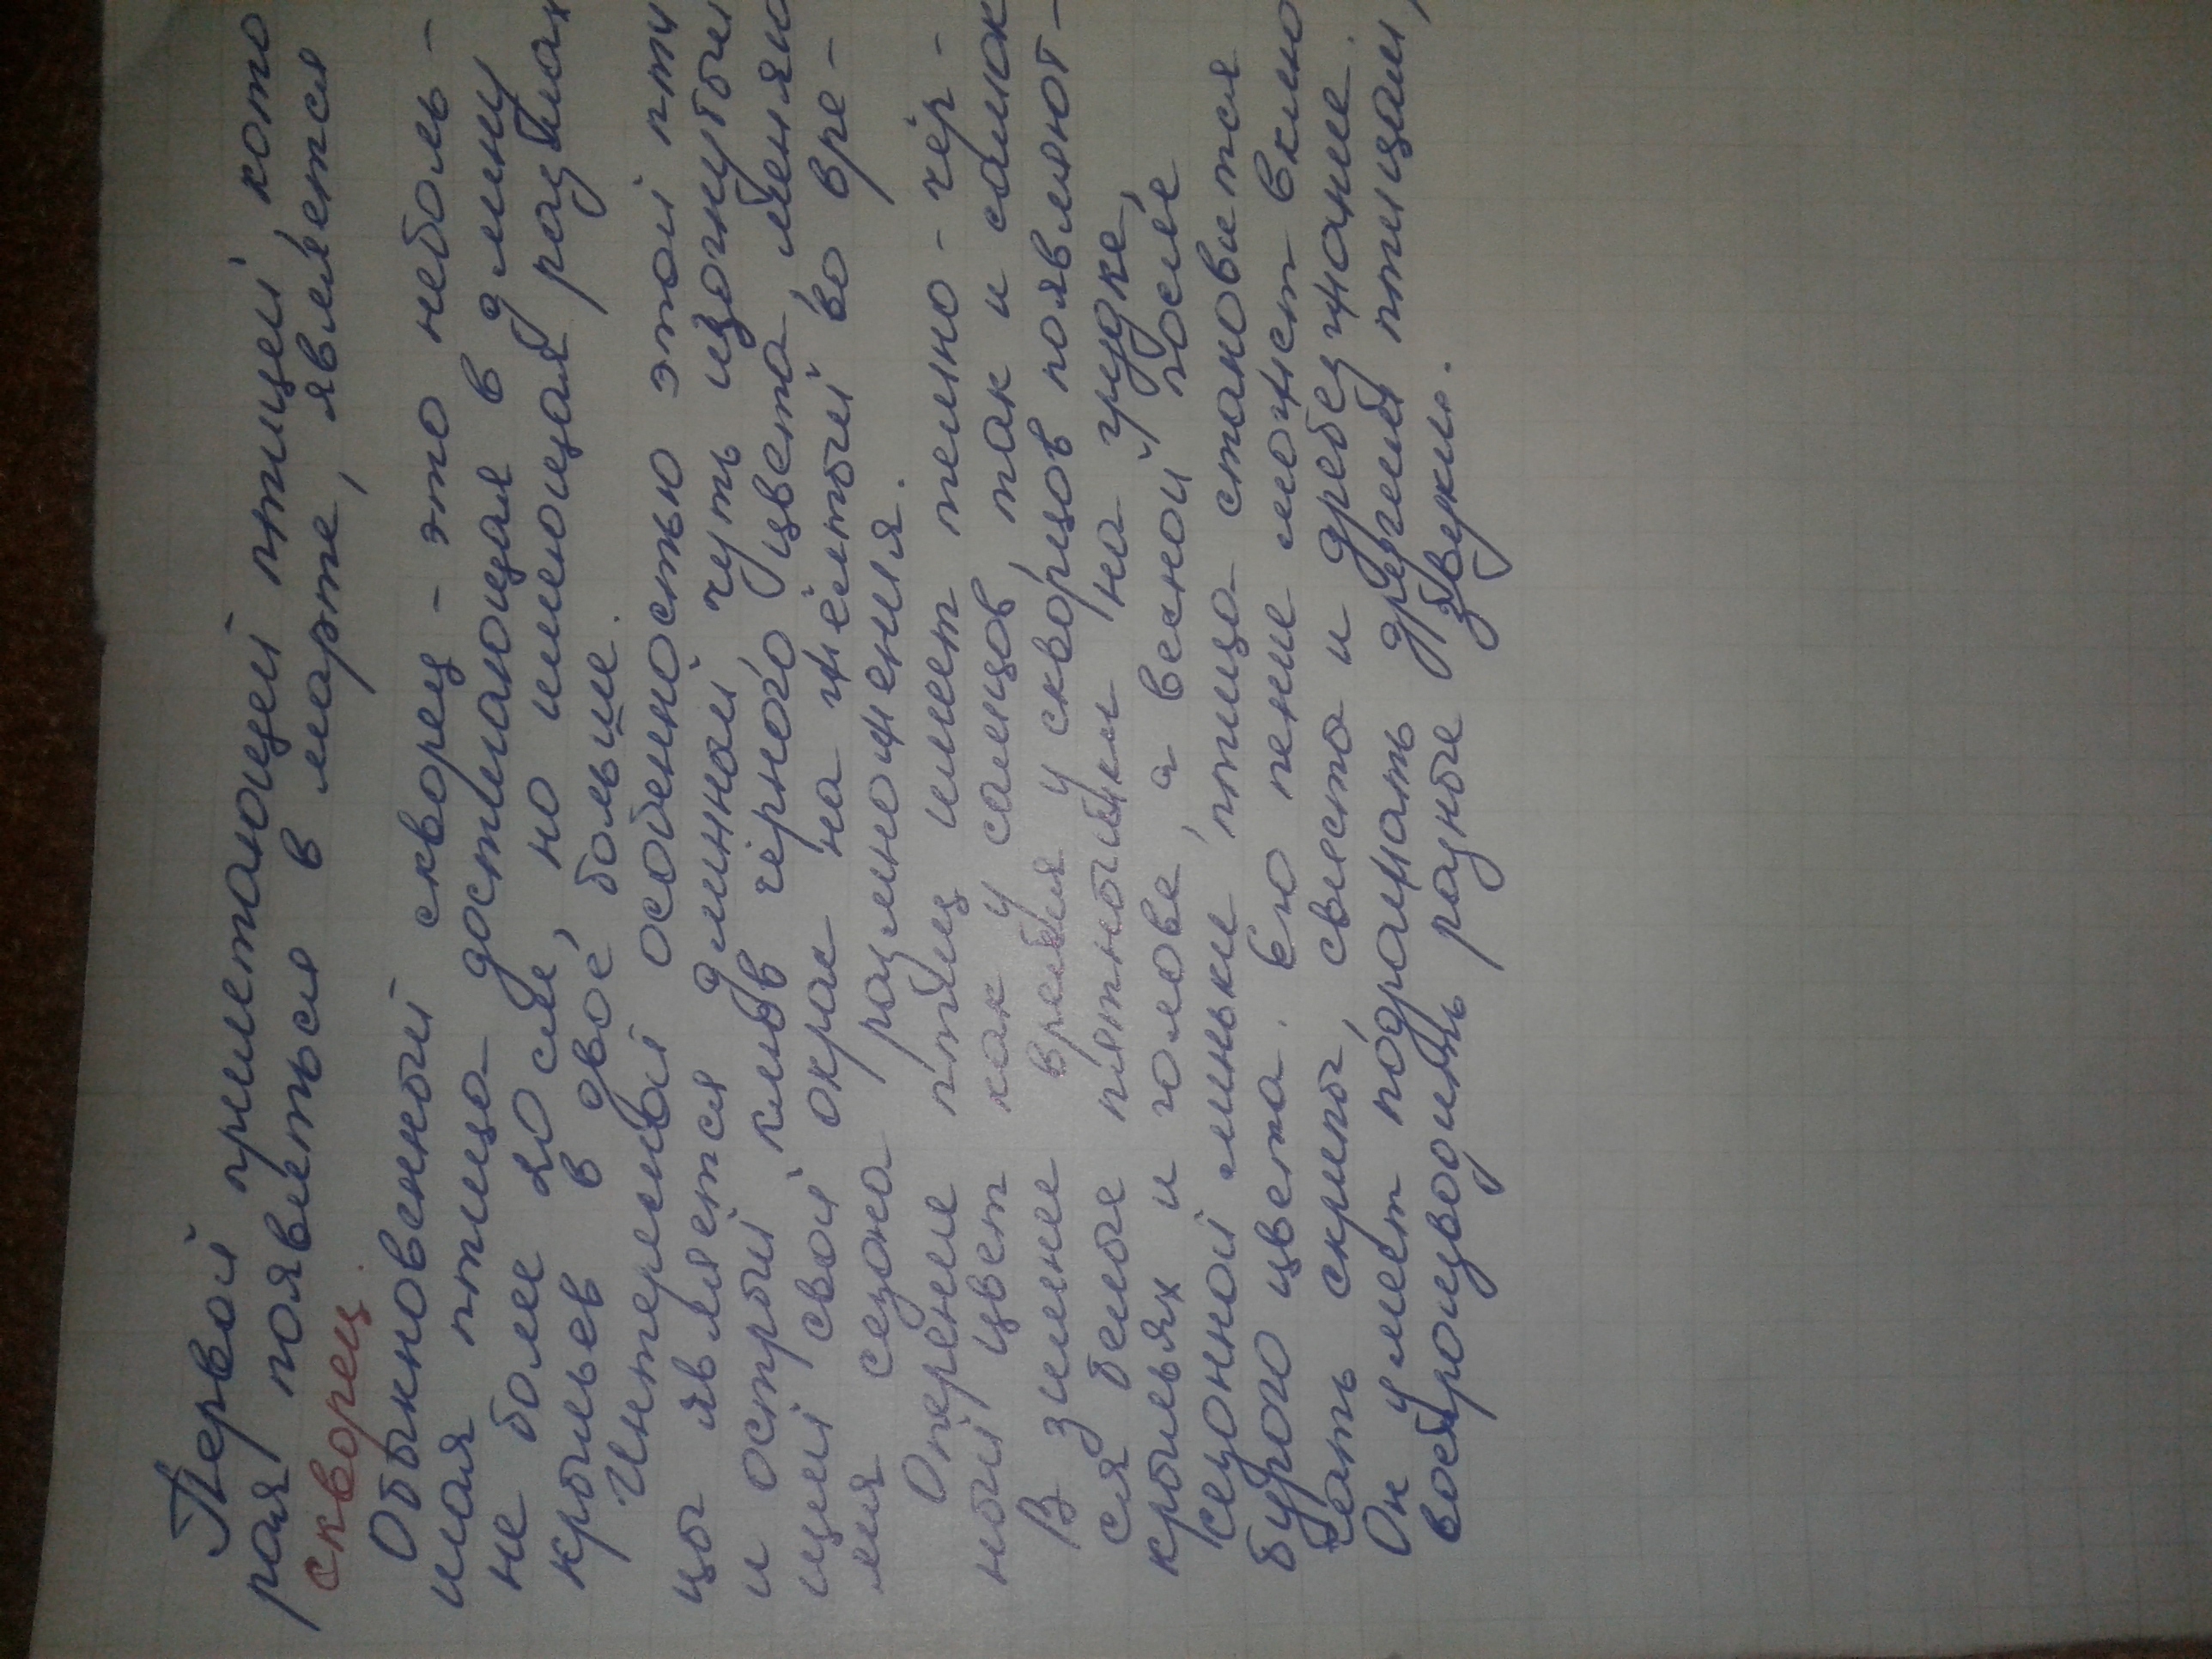 Первой прилетающей птицей, кото
рая появиться в марте, является
скворец.
Обыкновенный скворец - это неболь-
шая птица достигающая в длину
не более 20 см, но имеющая размах
крыльев в двое больше.
Интересной особенностью этой пти
цы является длинной чуть изогнутый
и острый клюв чёрного цвета, меняю
щий свой окрас на жёлтый во вре-
мя сезона размножения.
Оперение птиц имеет темно-чёр-
ный цвет как у самцов, так и самок
В зимнее время у скворцов появляют-
ся белые пятнышки на грудке,
крыльях и голове, а весной после
сезонной линьки птица становится
бурого цвета. Ею пение может вклю
чать скрипы, свиста и дребезжание.
Он умеет подражать другим птицам,
воспроизводить разные звуки.